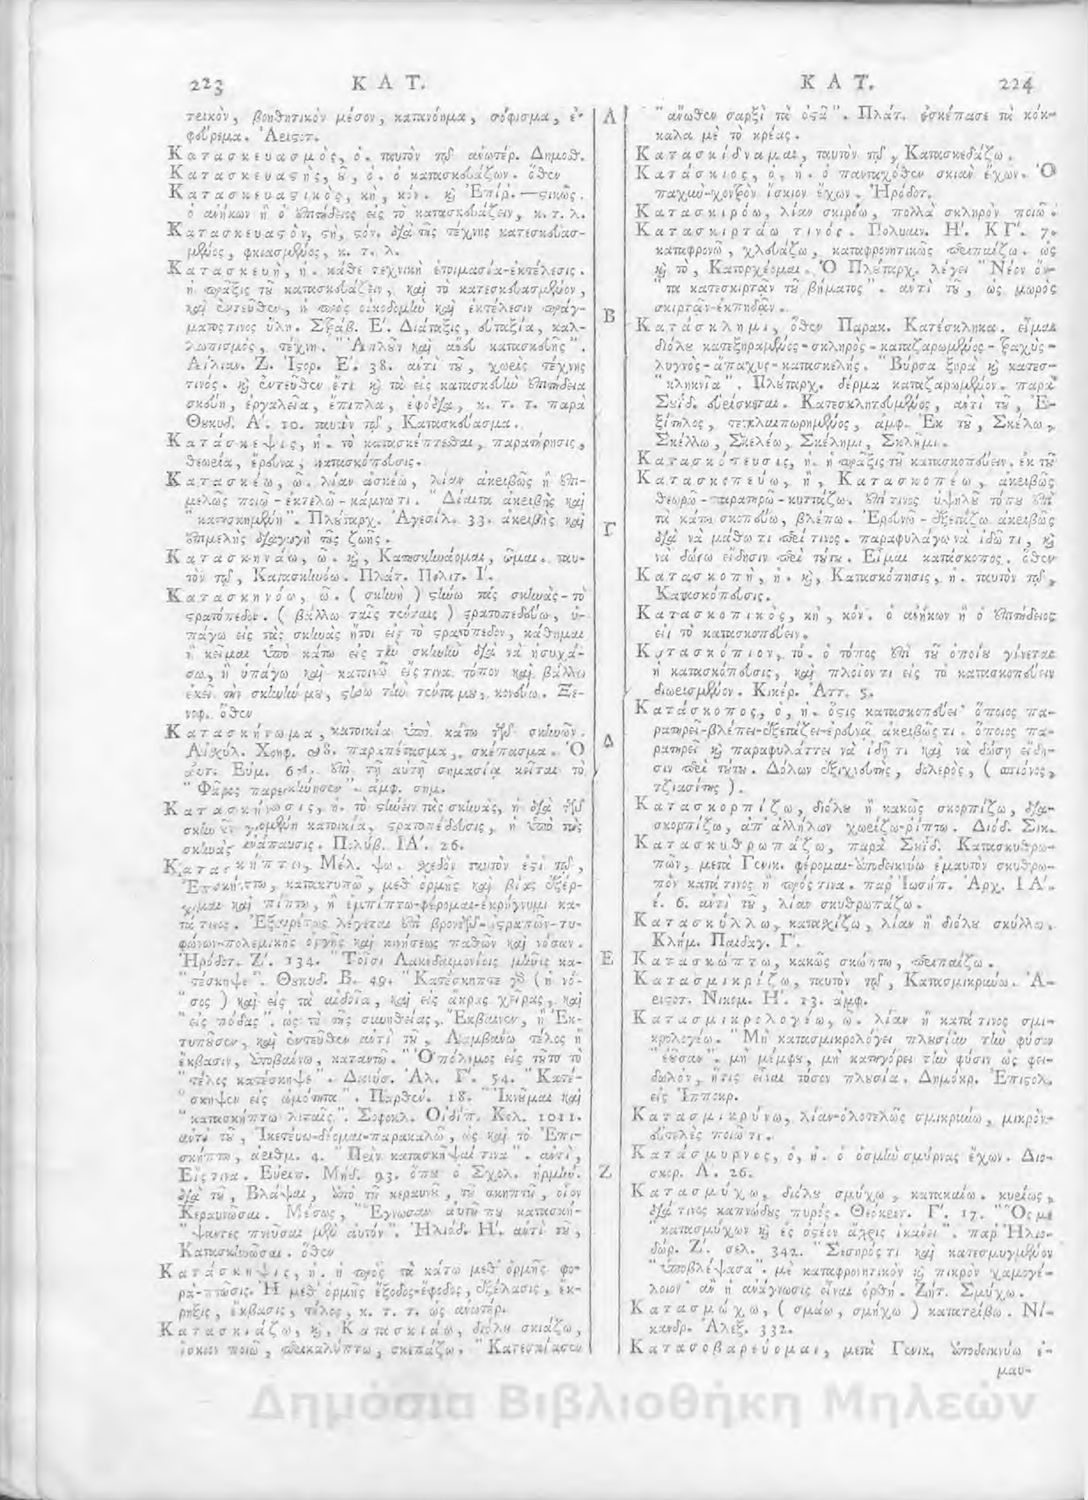 223 Κ Α Τ.
τεικὸν, βοηθητικὸν μέσον, κατανόημα, σόφισμα, ἐ-
φεύρεμα. Ἀριστ.
Κατασκευασμὸς, ὁ. ταυτὸν τῷ ἀνωτέρ. Δημοσθ.
Κατασκευαστὴς, οῦ, ὁ. ὁ κατασκευάζων. ὅθεν
Κατασκευαστικὸς, κὴ, κόν. καὶ Ἐπίρ. —στικῶς.
ὁ ἀνήκων ἢ ὁ ἐπιτήδειος εἰς τὸ κατασκευάζειν, κ. τ. λ.
Κατασκευαστὸν, στὴ, στόν. διὰ τῆς τέχνης κατεσκευασ-
μένος, φκιασμένος, κ. τ. λ.
Κατασκευὴ, ἡ. κάθε τεχνικὴ ἑτοιμασία-ἐκτέλεσις.
ἡ πρᾶξις τοῦ κατασκευάζειν, καὶ τὸ κατεσκευασμένον,
καὶ ἐντεῦθεν, ἡ πρὸς οἰκοδομὴν καὶ ἐκτέλεσιν πράγ-
ματός τινος ὕλη. Στράβ. Ε΄. Διάταξις, εὐταξία, καλ-
λωπισμὸς, τέχνη. "Ἁπλοῦν καὶ ἄνευ κατασκευῆς".
Αἰλιαν. Ζ. Ἱστορ. Ε΄. 38. ἀντὶ τοῦ, χωρὶς τέχνης
τινός. καὶ ἐντεῦθεν ἔτι καὶ τὰ εἰς κατασκευὴν ἐπιτήδεια
σκεύη, ἐργαλεῖα, ἔπιπλα, ἐφόδια, κ. τ. τ. παρὰ
Θουκυδ. Α΄. 10. ταυτὸν τῷ, Κατασκεύασμα.
Κατάσκεψις, ἡ. τὸ κατασκέπτεσθαι, παρατήρησις,
θεωρία, ἔρευνα, κατασκόπευσις.
Κατασκέω, ῶ. λίαν ἀσκέω, λίαν ἀκριβῶς ἢ ἐπι-
μελῶς ποιῶ - ἐκτελῶ - κάμνω τι. "Δίαιτα ἀκριβὴς καὶ
" κατησκημένη". Πλούταρχ. Ἀγεσίλ. 33. ἀκριβὴς καὶ
ἐπιμελὴς διαγωγὴ τῆς ζωῆς.
Κατασκηνάω, ῶ. καὶ, Κατασκηνάομαι, ῶμαι. ταυ-
τὸν τῷ, Κατασκηνόω. Πλάτ. Πολιτ. Ι΄.
Κατασκηνόω, ῶ. ( σκηνὴ ) στένω τὰς σκηνὰς - τὸ
στρατόπεδον. ( βάλλω ταῖς τένταις ) στρατοπεδεύω, ὑ-
πάγω εἰς τὰς σκηνὰς ἤτοι εἰς τὸ στρατόπεδον, κάθημαι
ἢ κεῖμαι ὑπὸ κάτω εἰς τὴν σκηνὴν διὰ νὰ ἡσυχά-
σω, ἢ ὑπάγω καὶ κατοικῶ εἴς τινα τόπον καὶ βάλλω
ἐκεῖ τὴν σκηνήν μου, στένω τὴν τένταμου, κονεύω. Ξε-
νοφ. ὅθεν
Κατασκήνωμα, κατοικία ὑπὸ κάτω τῶν σκηνῶν.
Αἰσχύλ. Χοηφ. 998. παραπέτασμα, σκέπασμα. Ὁ
αὐτ. Εὐμ. ἐπὶ τῇ αὐτῇ σημασίᾳ κεῖται τὸ
" Φᾶρος παρεσκήνησεν". ἀμφ. σημ.
Κατασκήνωσις, ἡ. τὸ στένειν τὰς σκηνὰς, ἡ διὰ τῶν
σκηνῶν γινομένη κατοικία, στρατοπέδευσις, ἡ ὑπὸ τὰς
σκηνὰς ἀνάπαυσις. Πολύβ. ΙΑ΄. 26.
Κατασκήπτω, Μέλ. ψω. σχεδὸν ταυτὸν ἐστὶ τῷ,
Ἐπισκήπτω, κατακτυπῶ, μεθ' ὁρμῆς καὶ βίας ἐξέρ-
χομαι καὶ πίπτω, ἢ ἐμπίπτω-φέρομαι-ἐκρήγνυμι κα-
τά τινος. Ἐξαιρέτως λέγεται ἐπὶ βροντῶν-ἀστραπῶν-τυ-
φώνων-πολεμικῆς ὀργῆς καὶ κινήσεως παθῶν καὶ νόσων.
Ἡρόδοτ. Ζ΄. 134. "Τοῖσι Λακεδαιμονίοις μῆνις κα-
" τέσκηψε". Θουκυδ. Β. 49. "Κατέσκηπτε γὰρ ( ἡ νό-
" σος ) καὶ εἰς τὰ αἰδοῖα, καὶ εἰς ἄκρας χεῖρας, καὶ
" εἰς πόδας". ὡς τὸ τῆς συνηθείας, Ἐκβαίνειν, ἢ Ἐκ-
τυπῦσεν, καὶ ἐντεῦθεν ἀντὶ τοῦ, Λαμβάνω τέλος ἢ
ἔκβασιν, ἀποβαίνω, καταντῶ. "Ὁ πόλεμος εἰς τοῦτο τὸ
" τέλος κατέσκηψε". Διονύσ. Ἁλ. Γ΄. 54. "Κατέ-
" σκηψεν εἰς ὠμότητα". Παρθεν. 18. "Ἱκνοῦμαι καὶ
" κατασκήπτω λιταῖς". Σοφοκλ. Οἰδίπ. Κολ. 1011.
ἀντὶ τοῦ, Ἱκετεύω-δέομαι-παρακαλῶ, ὡς καὶ τὸ Ἐπι-
σκήπτω, ἀριθμ. 4. "Πρὶν κατασκῆψαί τινα". ἀντὶ,
Εἴς τινα. Εὐριπ. Μήδ. 93. ὅπου ὁ Σχολ. ἡρμήν.
διὰ τοῦ, Βλάψαι, ἀπὸ τοῦ κεραυνοῦ, τοῦ σκηπτοῦ, οἷον
Κεραυνῶσαι. Μέσως, "Ἔγνωσαν αὐτοῦ που κατασκή-
" ψαντες πνεῦσαι μετ' αὐτόν". Ἡλιόδ. Η΄. ἀντὶ τοῦ,
Κατασκηνῶσαι. ὅθεν
Κατάσκηψις, ἡ. ἡ πρὸς τὰ κάτω μεθ' ὁρμῆς φο-
ρά-πτῶσις. Ἡ μεθ' ὁρμῆς ἔξοδος-ἔφοδος, ἐξέλασις, ἔκ-
ρηξις, ἔκβασις, τέλος, κ. τ. τ. ὡς ἀνωτέρ.
Κατασκιάζω, καὶ, Κατασκιάω, διόλου σκιάζω,
ἴσκιον ποιῶ, περικαλύπτω, σκεπάζω. "Κατεσκίασεν
Α
Β
Γ
Δ
Ε
Ζ
Κ Α Τ. 224
" ἄνωθεν σαρξὶ τὰ ὀστᾶ". Πλάτ. ἐσκέπασε τὰ κόκ-
καλα μὲ τὸ κρέας.
Κατασκίδναμαι, ταυτὸν τῷ, Κατασκεδάζω.
Κατάσκιος, ὁ, ἡ. ὁ πανταχόθεν σκιὰν ἔχων. Ὁ
παχὺν-χονδρὸν ἴσκιον ἔχων. Ἡρόδοτ.
Κατασκιρόω, λίαν σκιρόω, πολλὰ σκληρὸν ποιῶ.
Κατασκιρτάω τινός. Πολυαιν. Η΄. ΚΓ΄. 7.
καταφρονῶ, χλευάζω, καταφρονητικῶς περιπαίζω. ὡς
καὶ τὸ, Κατορχέομαι. Ὁ Πλούταρχ. λέγει "Νέον ὄν-
" τα κατεσκιρτᾶν τοῦ βήματος". ἀντὶ τοῦ, ὡς μωρὸς
σκιρτᾶν-ἐκπηδᾶν.
Κατάσκλημι, ὅθεν Παρακ. Κατέσκληκα. εἶμαι
διόλου κατεξηραμένος - σκληρὸς - καταζαρωμένος - τραχὺς -
λυγνὸς - ἄπαχυς - κατασκελής. "Βύρσα ξηρὰ καὶ κατεσ-
" κληκυῖα". Πλούταρχ. δέρμα καταζαρωμένον. παρὰ
Σουΐδ. εὑρίσκεται. Κατεσκλητευμένος, ἀντὶ τοῦ, Ἐ-
ξίτηλος, τεταλαιπωρημένος, ἀμφ. Ἐκ τοῦ, Σκέλω,
Σκέλλω, Σκελέω, Σκέλημι, Σκλῆμι.
Κατασκόπευσις, ἡ. ἡ πρᾶξις τοῦ κατασκοπεύειν. ἐκ τοῦ
Κατασκοπεύω, ἢ, Κατασκοπέω, ἀκριβῶς
θεωρῶ - παρατηρῶ - κυττάζω. ἐπί τινος ὑψηλοῦ τόπου ἐπὶ
τὰ κάτω σκοπεύω, βλέπω. Ἐρευνῶ - ἐξετάζω ἀκριβῶς
διὰ νὰ μάθω τι περί τινος. παραφυλάγω νὰ ἰδῶ τι, καὶ
νὰ δώσω εἴδησιν περὶ τούτου. Εἶμαι κατάσκοπος. ὅθεν
Κατασκοπὴ, ἡ. καὶ, Κατασκόπησις, ἡ. ταυτὸν τῷ,
Κατασκόπευσις.
Κατασκοπικὸς, κὴ, κόν. ὁ ἀνήκων ἢ ὁ ἐπιτήδειος
εἰς τὸ κατασκοπεύειν.
Κατασκόπιον, τό. ὁ τόπος ἐπὶ τοῦ ὁποίου γίνεται
ἡ κατασκόπευσις, καὶ πλοῖόν τι εἰς τὸ κατασκοπεύειν
διωρισμένον. Κικέρ. Ἀττ. 5.
Κατάσκοπος, ὁ, ἡ. ὅστις κατασκοπεύει· ὅποιος πα-
ρατηρεῖ-βλέπει-ἐξετάζει-ἐρευνᾷ ἀκριβῶς τι. ὅποιος πα-
ρατηρεῖ καὶ παραφυλάττει νὰ ἰδῇ τι καὶ νὰ δώσῃ εἴδη-
σιν περὶ τούτου. Δόλων ἐξιχνευτὴς, δολερὸς, ( σπιόνος,
τζιασίτης ).
Κατασκορπίζω, διόλου ἢ κακῶς σκορπίζω, δια-
σκορπίζω, ἀπ' ἀλλήλων χωρίζω-ῥίπτω. Διόδ. Σικ.
Κατασκυθρωπάζω, παρὰ Σκίδ. Κατασκυθρω-
πῶν, μετὰ Γενικ. φέρομαι-ἀποδεικνύω ἐμαυτὸν σκυθρω-
πὸν κατά τινος ἢ πρός τινα. παρ' Ἰωσήπ. Ἀρχ. ΙΑ΄.
ἐ. 6. ἀντὶ τοῦ, λίαν σκυθρωπάζω.
Κατασκύλλω, κατασχίζω, λίαν ἢ διόλου σκύλλω.
Κλήμ. Παιδαγ. Γ΄.
Κατασκώπτω, κακῶς σκώπτω, περιπαίζω.
Κατασμικρίζω, ταυτὸν τῷ, Κατασμικρύνω. Ἀ-
ριστοτ. Νικομ. Η΄. 13. ἀμφ.
Κατασμικρολογέω, ῶ. λίαν ἢ κατά τινος σμι-
κρολογέω. "Μὴ κατασμικρολόγει πλουσίαν τὴν φύσιν
" ἐοῦσαν". μὴ μέμφου, μὴ κατηγόρει τὴν φύσιν ὡς φει-
δωλὸν, ἥτις εἶναι τόσον πλουσία. Δημόκρ. Ἐπιστολ.
εἰς Ἱπποκρ.
Κατασμικρύνω, λίαν-ὁλοτελῶς σμικρύνω, μικρὸν-
εὐτελὲς ποιῶ τι.
Κατάσμυρνος, ὁ, ἡ. ὁ ὀσμὴν σμύρνας ἔχων. Διο-
σκορ. Α. 26.
Κατασμύχω, διόλου σμύχω, κατακαίω. κυρίως,
διά τινος καπνώδους πυρός. Θεόκριτ. Γ΄. 17. "Ὅς με
" κατασμύχων καὶ ἐς ὀστέον ἄχρις ἱκάνει". παρ' Ἡλιο-
δώρ. Ζ΄. σελ. 342. "Σεσηρός τι καὶ κατεσμυγμένον
" ὑποβλέψασα". μὲ καταφρονητικὸν καὶ πικρὸν χαμογέ-
λοιον· ἂν ἡ ἀνάγνωσις εἶναι ὀρθή. Ζήτ. Σμύχω.
Κατασμώχω, ( σμάω, σμήχω ) κατατρίβω. Νί-
κανδρ. Ἀλεξ. 332.
Κατασοβαρεύομαι, μετὰ Γενικ. ἀποδεικνύω ἐ-
μαυ-
Δημόσια Βιβλιοθήκη Μηλεών